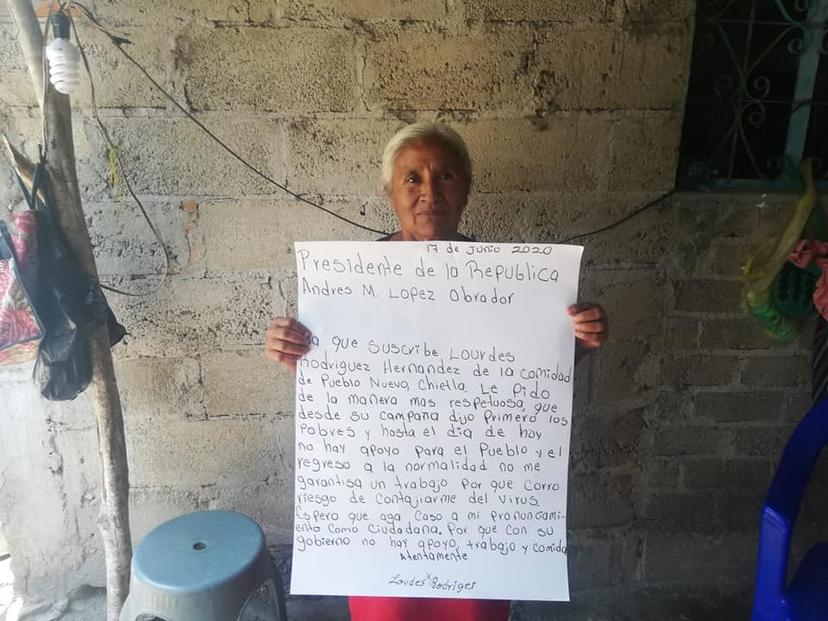 17 de Junio 2020
Presidente de la Republica
Andres M. Lopez Obrador
La que suscribe Lourdes
Rodriguez Hernandez de la comidad
de Pueblo Nuevo, Chietla. Le Pido
de la manera mas respetuosa, que
desde su campaña dijo Primero los
Pobres y hasta el dia de hoy
no hay apoyo para el Pueblo y el
regreso a la normalidad no me
garantisa un trabajo Por que corro
riesgo de contajiarme del virus.
Espero que aga caso a mi pronunciami-
ento como ciudadana. Por que con su
gobierno no hay apoyo, trabajo y comida
Atentamente
Loudes Rodriges